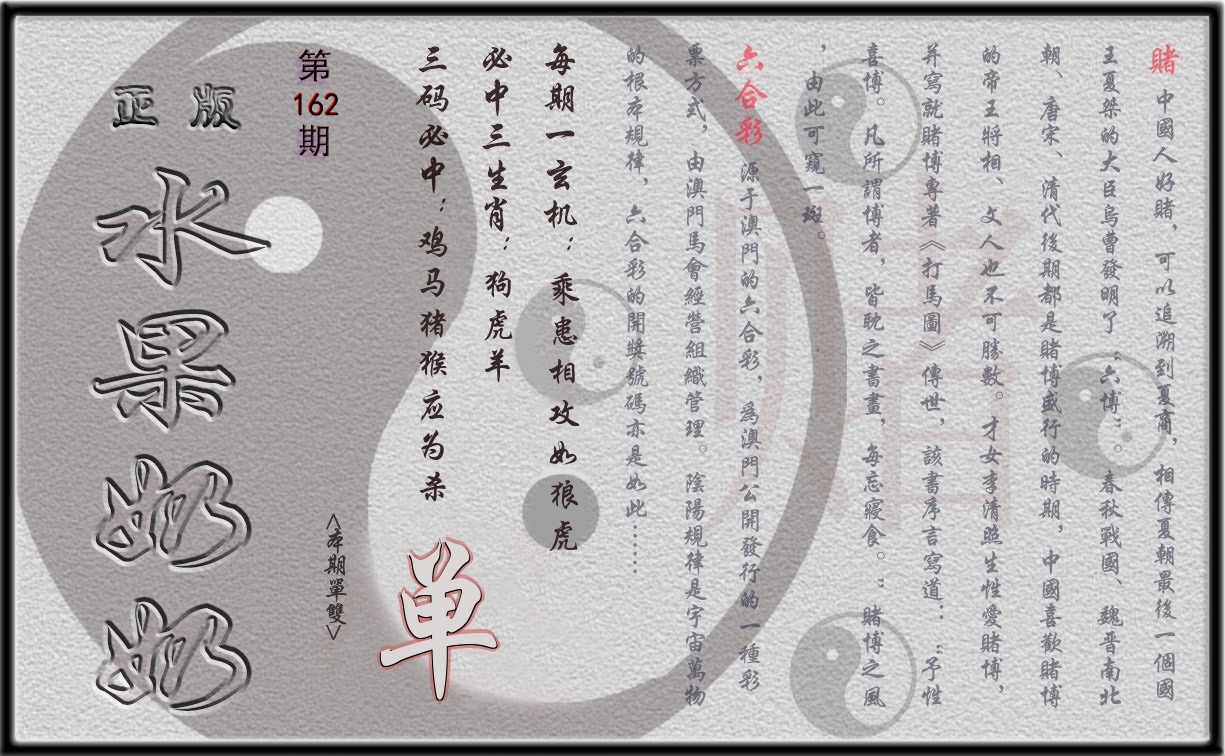 賭 中國人好賭，可以追溯到夏商，相傳夏朝最後一個國
王夏桀的大臣烏曹發明了“六博”。春秋戰國、魏晋南北
朝、唐宋、清代後期都是賭博盛行的時期，中國喜歡賭博
的帝王將相、文人也不可勝數。才女李清照生性愛賭博，
并寫就賭博專著《打馬圖》傳世，該書序言寫道：“予性
喜博。凡所謂博者，皆耽之書畫，每忘寢食。”賭博之風
，由此可窺一斑。
六合彩 源于澳門的六合彩，爲澳門公開發行的一種彩
票方式，由澳門馬會經營組織管理。陰陽規律是宇宙萬物
的根本規律，六合彩的開獎號碼亦是如此……
每期一玄机：乘患相攻如狼虎
必中三生肖：狗虎羊
三码必中：鸡马猪猴应为杀
单
<本期單雙>
第162期
正版
水果奶奶
賭